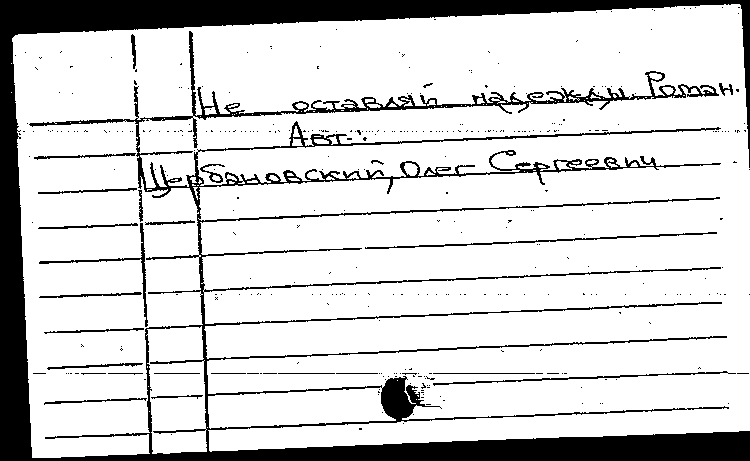 Не оставляй надежды. Роман.
Авт.:
Щербановский, Олег Сергеевич